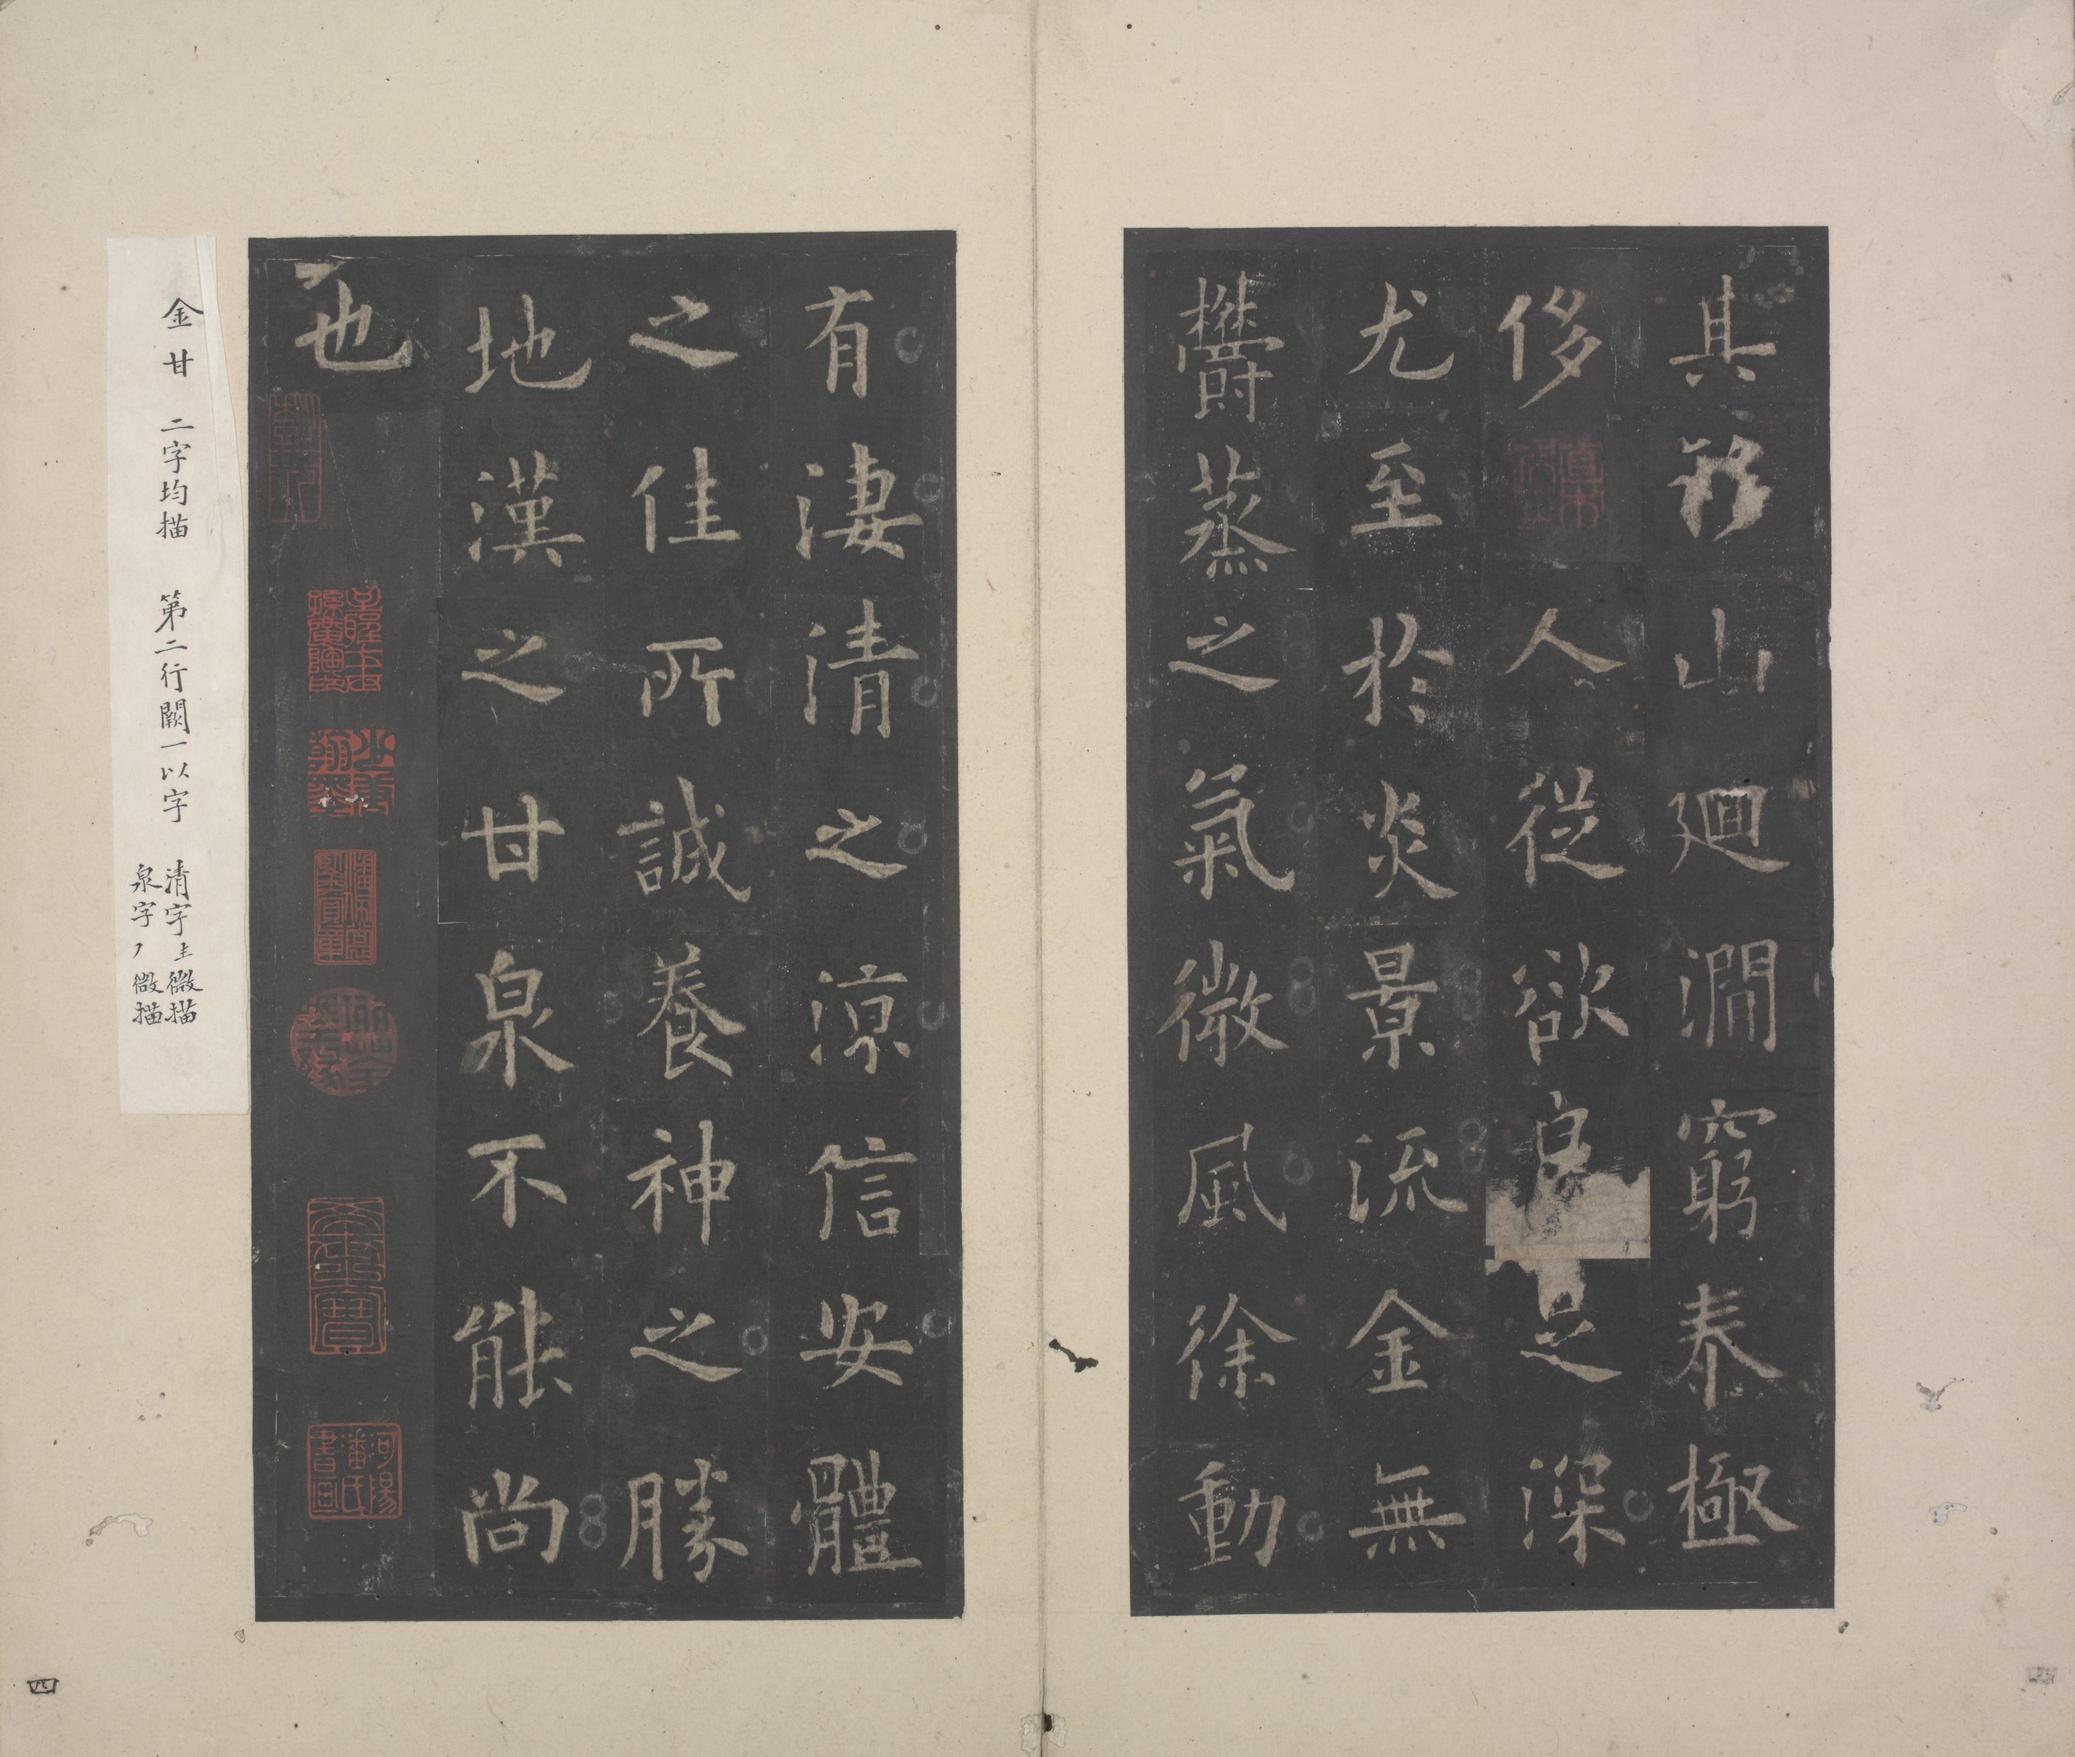 其移山廻澗窮泰極
侈人從欲良足深
尤至於炎景流金無
欝蒸之氣微風徐動
有淒清之涼信安體
之佳所誠養神之勝
地漢之甘泉不能尚
也
金甘 二字均描 第二行闕一以字 清字龶微描
泉字丿微描
河陽潘氏書画
四